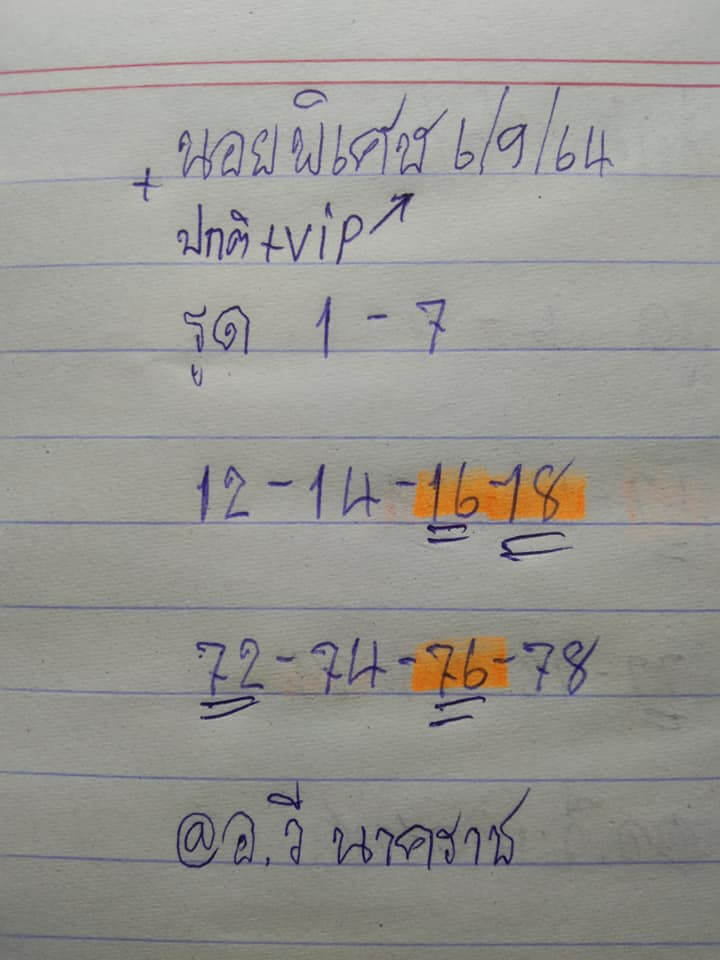 นอยพิเศษ 6/9/64
+ ปกติ+vip↗
รูด 1 - 7
12 - 14 - 16 - 18
72 - 74 - 76 - 78
@อ.วี นาคราช